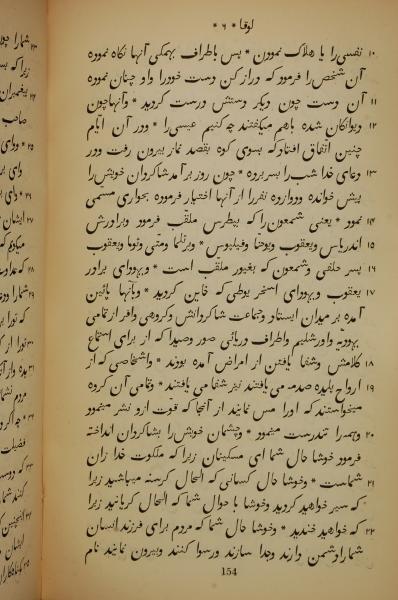 لوقا * ۶ *
۱۰ نفسی‌را یا هلاک نمودن * پس باطراف بهمگی آنها نگاه نموده
آن شخص‌را فرمود که دراز کن دست خودرا واو چنان نموده
۱۱ آن دست چون دیگر دستش درست گردید * وآنهاچون
۱۲ دیوانگان شده باهم میگفتند چه کنیم عیسی‌را * ودر آن ایّام
چنین اتّفاق افتاد که بسوی کوه بقصد نماز بیرون رفت ودر
۱۳ دعای خدا شب‌را بسر برده * چون روز بر آمد شاگردان خویش‌را
پیش خوانده ودوازده نفررا از آنها اختیار فرموده بحواری مسمّی
۱۴ نمود * یعنی شمعون‌را که بپطرس ملقّب فرمود وبرادرش
۱۵ اندریاس ویعقوب ویوحنا وفیلپوس * وبرتلما ومتّی وتوما ویعقوب
۱۶ پسر حلفی وشمعون که بغیور ملقّب است * ویهودای برادر
۱۷ یعقوب ویهودای اسخریوطی که خاین گردید * وبآنها پائین
آمده بر میدان ایستاد وجماعت شاگردانش وگروهی وافر از تمامی
یهودیّه واورشلیم واطراف دریائی صور وصیدا که از برای استماع
۱۸ کلامش وشفا یافتن از امراض آمده بودند * واشخاصی که از
۱۹ ارواح پلیده صدمه می یافتند نیز شفا می یافتند * وتمامی آن گروه
میخواستند که اورا مس نمایند از آنجا که قوت ازو نشر مینمود
۲۰ وهمه‌را تندرست مینمود * وچشمان خویش‌را بشاگردان انداخته
فرمود خوشا حال شما ای مسکینان زیرا که ملکوت خدا زان
۲۱ شماست * وخوشا حال کسانی که الحال گرسنه میباشید زیرا
که سیر خواهید گردید وخوشا با حوال شما که الحال گریانید زیرا
۲۲ که خواهید خندید * وخوشا حال شما که مردم برای فرزند انسان
شمارا دشمن دارند وجدا سازند ورسوا کنند وبیرون نمایند نام
154